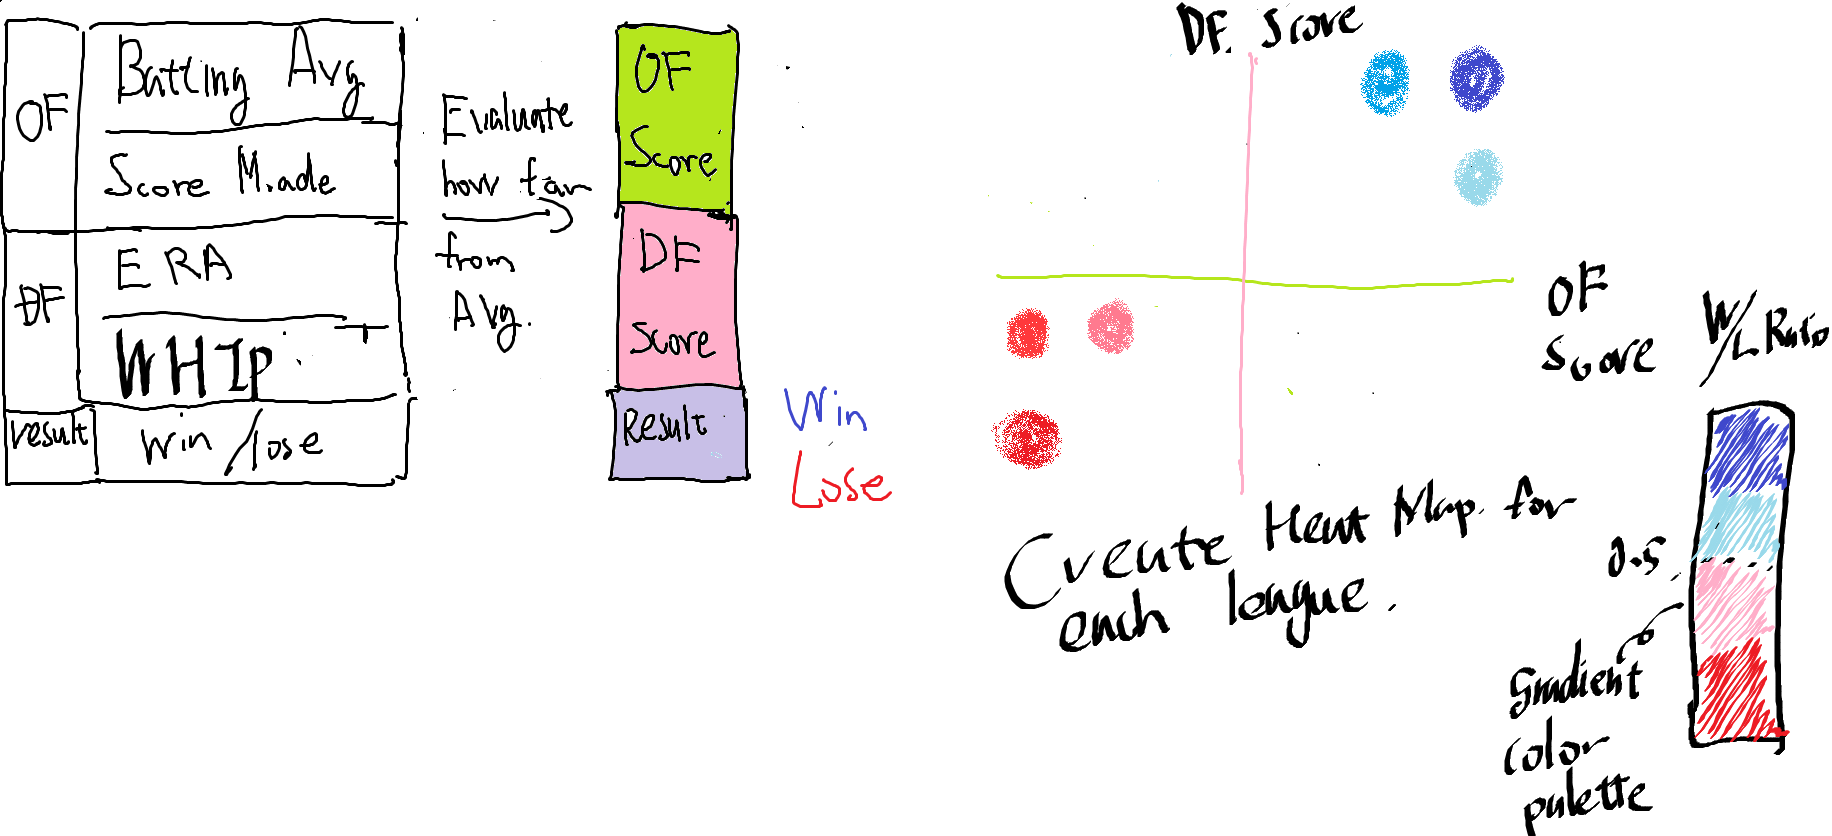 OF
Batting Avg
Score Made
DF
ERA
WHIP
result
Win/lose
Evaluate
how far
from
Avg.
OF
Score
DF
Score
Result
Win
Lose
DF. Score
OF
Score
W/L Ratio
0.5
Gradient
color
palette
Create Heat Map for
each league.